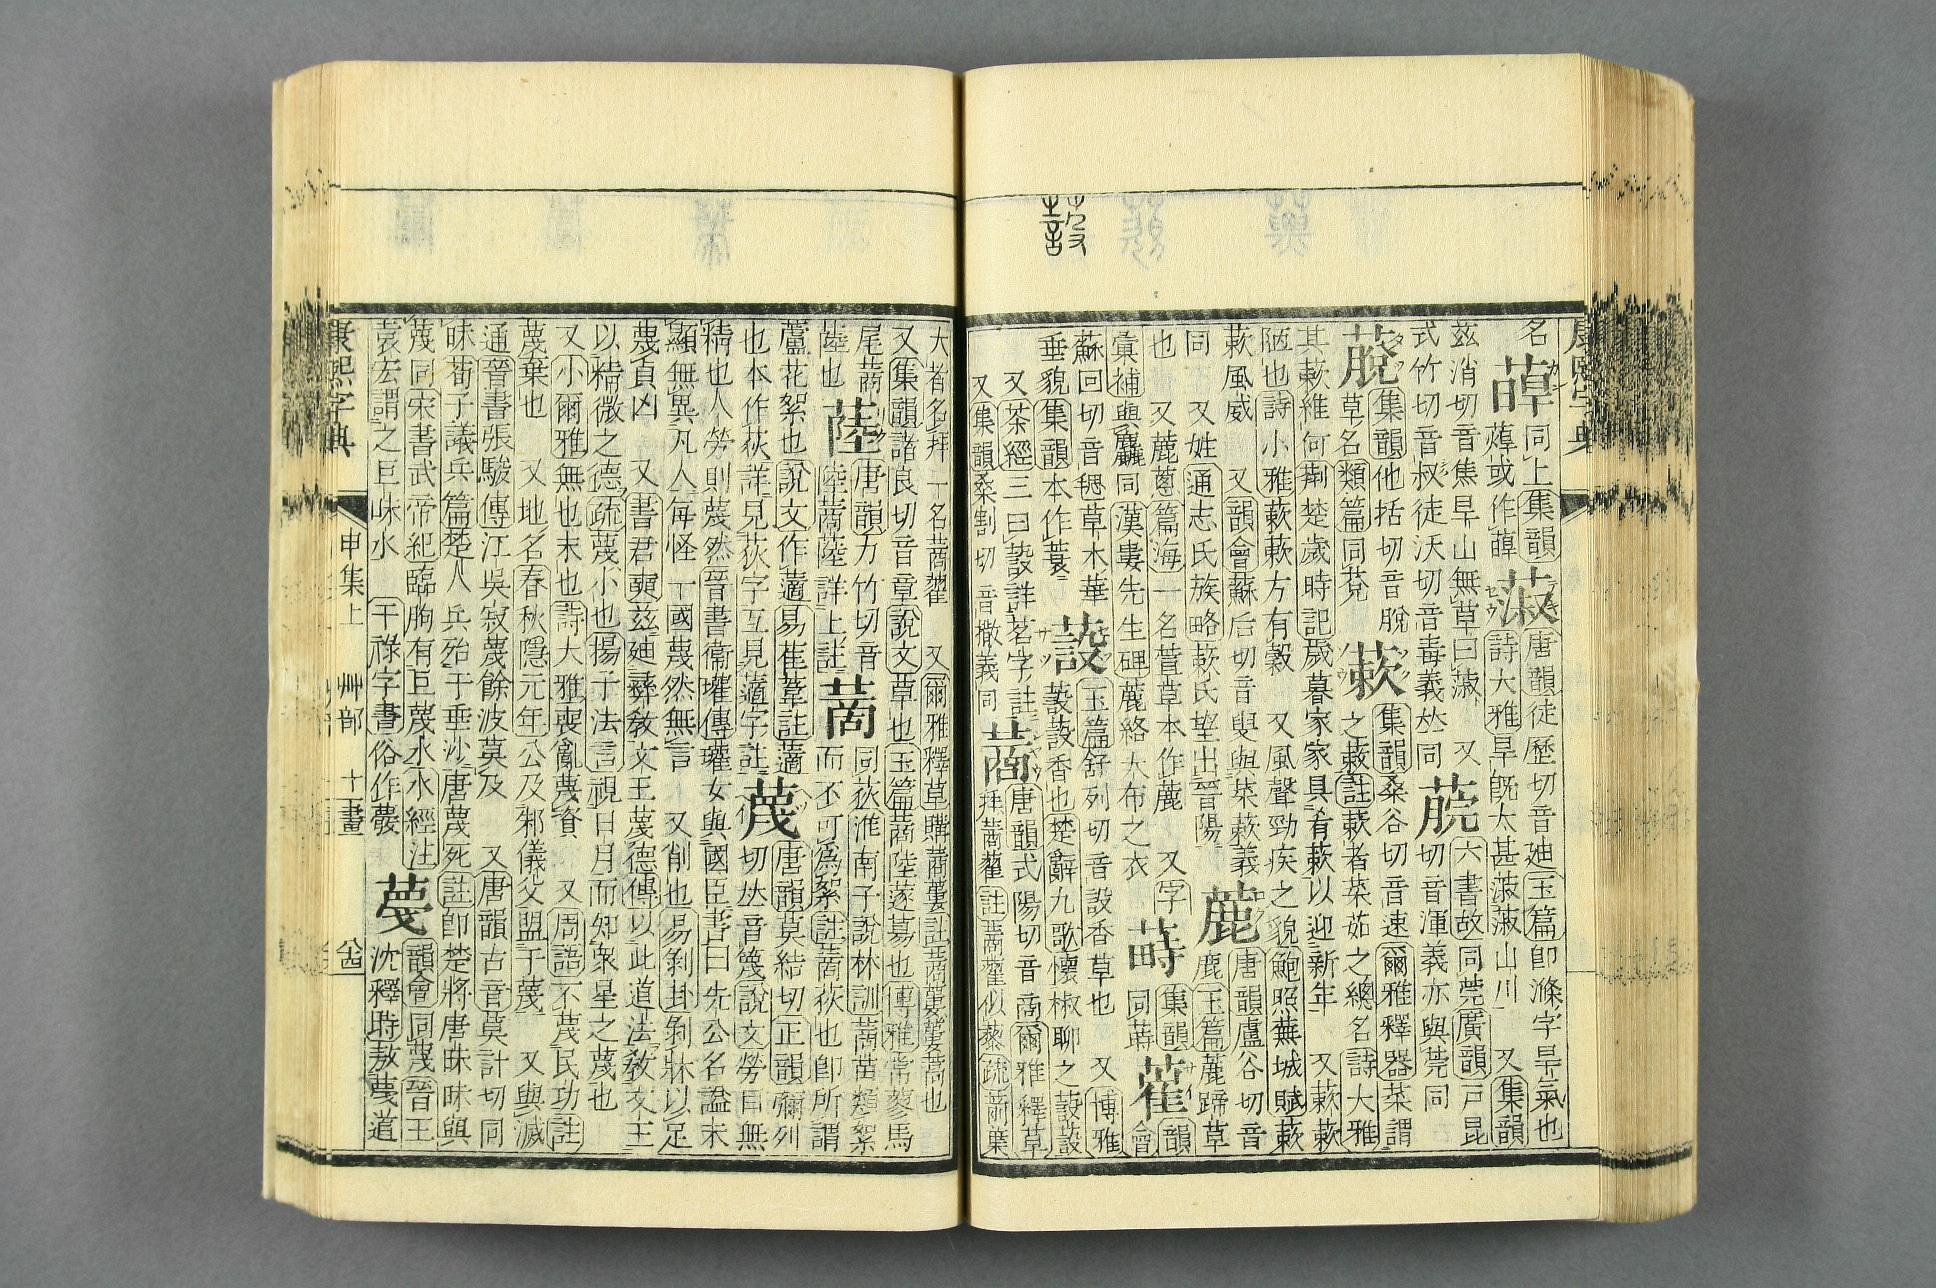 名䓬同上集韻
蔊或作䓬菽唐韻徒歷切音廸玉篇卽滌字旱氣也
詩大雅旱旣太甚蔋蔋山川 又集韻
茲消切音焦旱山無草曰蔋 又
式竹切音叔徒沃切音毒義𠀤同
六書故同莞廣韻戸昆
切音渾義亦與莞同
蓚集韻他括切音脫
草名類篇同莌
蔌集韻桑谷切音速爾雅釋器菜謂
之蔌註蔌者菜茹之總名詩大雅
其蔌維何荆楚歲時記歲暮家家具肴蔌以迎新年 又蔌蔌
陋也詩小雅蔌蔌方有穀 又風聲勁疾之貌鮑照蕪城賦蔌
蔌風威 又韻會蘇后切音叟與棷蔌義
同 又姓通志氏族略蔌氏望出晉陽
蔍唐韻盧谷切音
鹿玉篇蔍蹄草
也 又蔍蔥篇海一名萱草本作蔍 又字
彙補與麤同漢婁先生碑蔍絡大布之衣
蒔集韻
同蒔
蓷集韻
蘇回切音毸草木華
垂貌集韻本作蓑
蔎玉篇舒列切音設香草也 又博雅
蔎蔎香也楚辭九歌懷椒聊之蔎蔎
又茶經三曰蔎詳茗字註
又集韻桑割切 音撒義同
蔏唐韻式陽切音商爾雅釋草
拜蔏藋註蔏藋似藜疏葥葉
大者名拜一名蔏藋 又爾雅釋草購蔏蔞註蔏蔞蔞蒿也
又集韻諸良切音章說文草也玉篇蔏陸蓫募也博雅常蓼馬
尾蔏蔏陸也
蓾唐韻力竹切音
陸蔏陸詳上註
蔐同荻淮南子說林訓蔐苗類絮
而不可爲絮註蔐荻也卽所謂
蘆花絮也說文作藡易萑葦註藡
也本作荻詳見荻字互見藡字註
蔑唐韻莫結切正韻彌列
切𠀤音篾說文勞目無
精也人勞則蔑然晉書衞瓘傳瓘女與國臣書曰先公名謚未
顯無異凡人每怪一國蔑然無言 又削也易剝卦剝牀以足
蔑貞凶 又書君奭茲廸彝敎文王蔑德傳以此道法敎文王
以精微之德疏蔑小也揚子法言視日月而知衆星之蔑也
又小爾雅無也末也詩大雅喪亂蔑資 又周語不蔑民功註
蔑棄也 又地名春秋隱元年公及邾儀父盟于蔑 又與滅
通晉書張駿傳江吳寂蔑餘波莫及 又唐韻古音莫計切同
昧荀子議兵篇楚人兵殆于垂沙唐蔑死註卽楚將唐昧昧與
蔑同宋書武帝紀臨朐有巨蔑水水經注
袁宏謂之巨昧水
干祿字書俗作䕾
蔓韻會同蔑晉王
沈釋時敖蔓道
蔎
康熙字典
申集上 艸部 十一畫
康熙字典